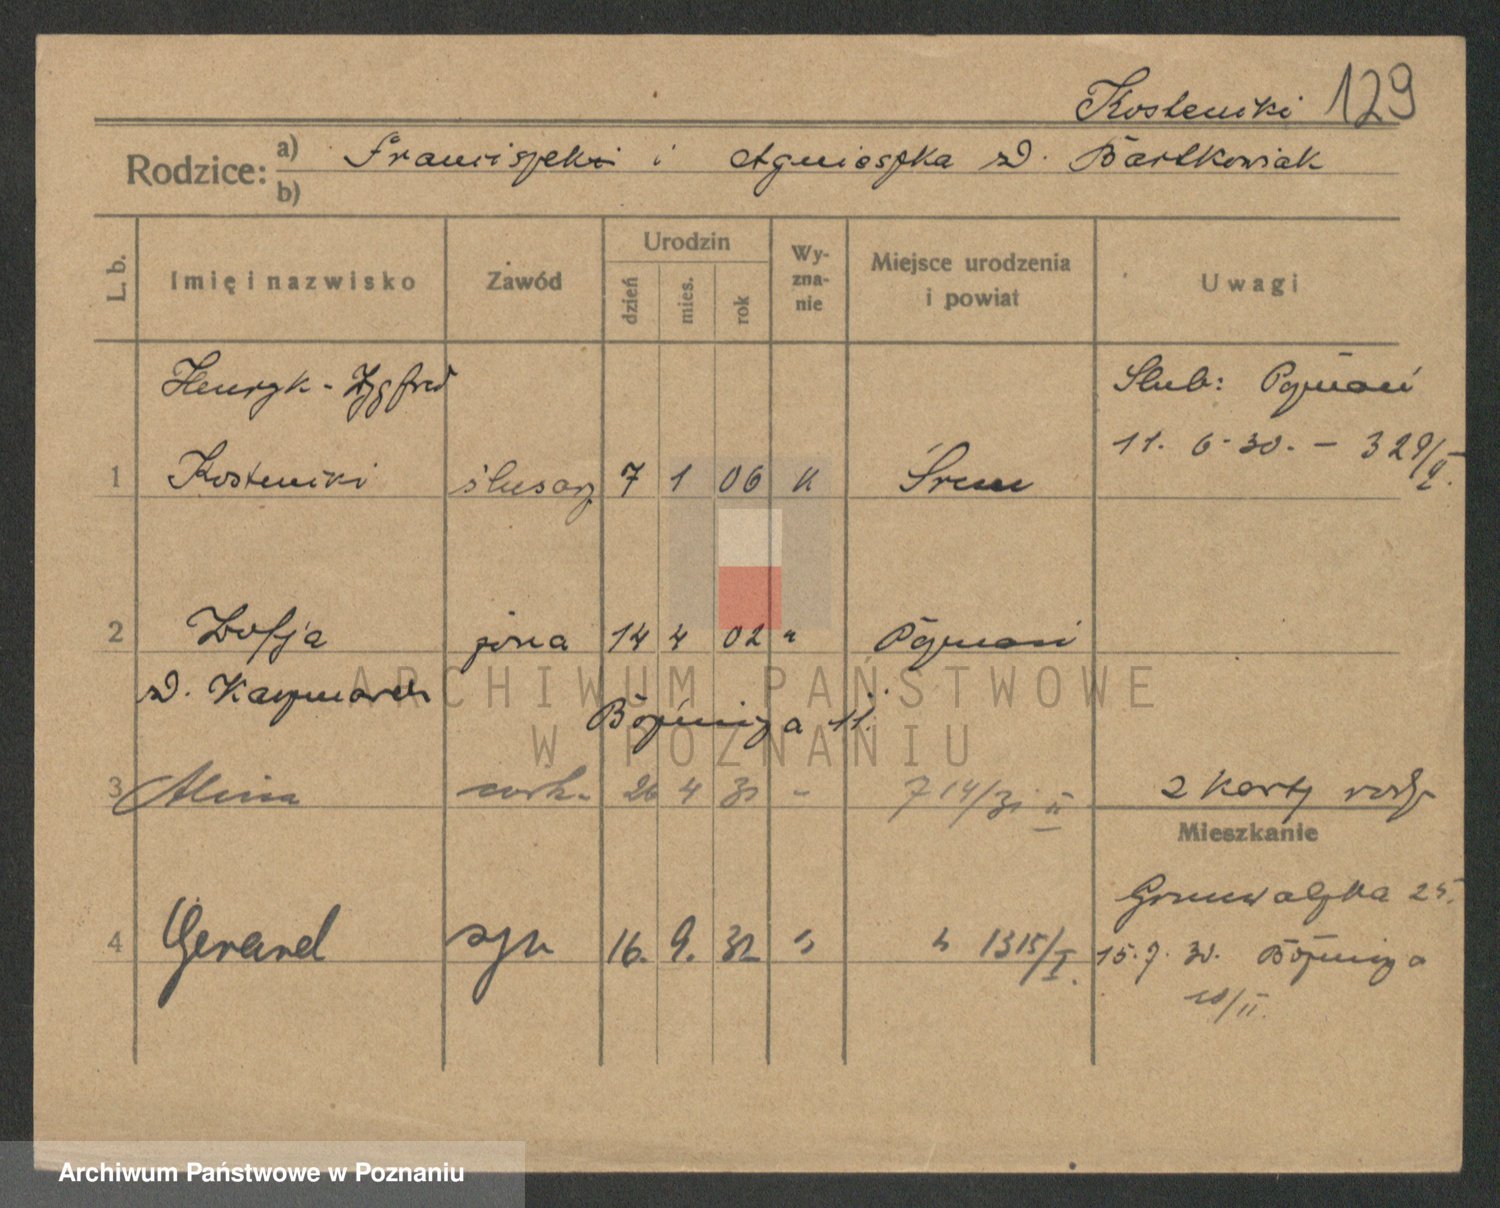 Kostencki 129
Rodzice: a) Franciszek i Agnieszka z D. Bartkowiak
b)
L. b. Imię i nazwisko Zawód Urodzin dzień mies. rok Wy-zna-nie Miejsce urodzenia i powiat Uwagi
Henryk - Zygfred Ślub: Poznań
11. 6. 30. - 329/
1 Kostencki ślusarz 7 1 06 k Śrem
2 Zofja żona 14 4 02 " Poznań
D. Kaczmarek
Bóżnicza 11.
3 Alina córk. 26 4 31 - 714/31 II 2 karty rodz
Mieszkanie
Grunwaldzka 25.
4 Gerard syn 16. 9. 32 " " 1315/I. 15.7.30. Bóżnicza
10/II.
ARCHIWUM PAŃSTWOWE
W POZNANIU
Archiwum Państwowe w Poznaniu